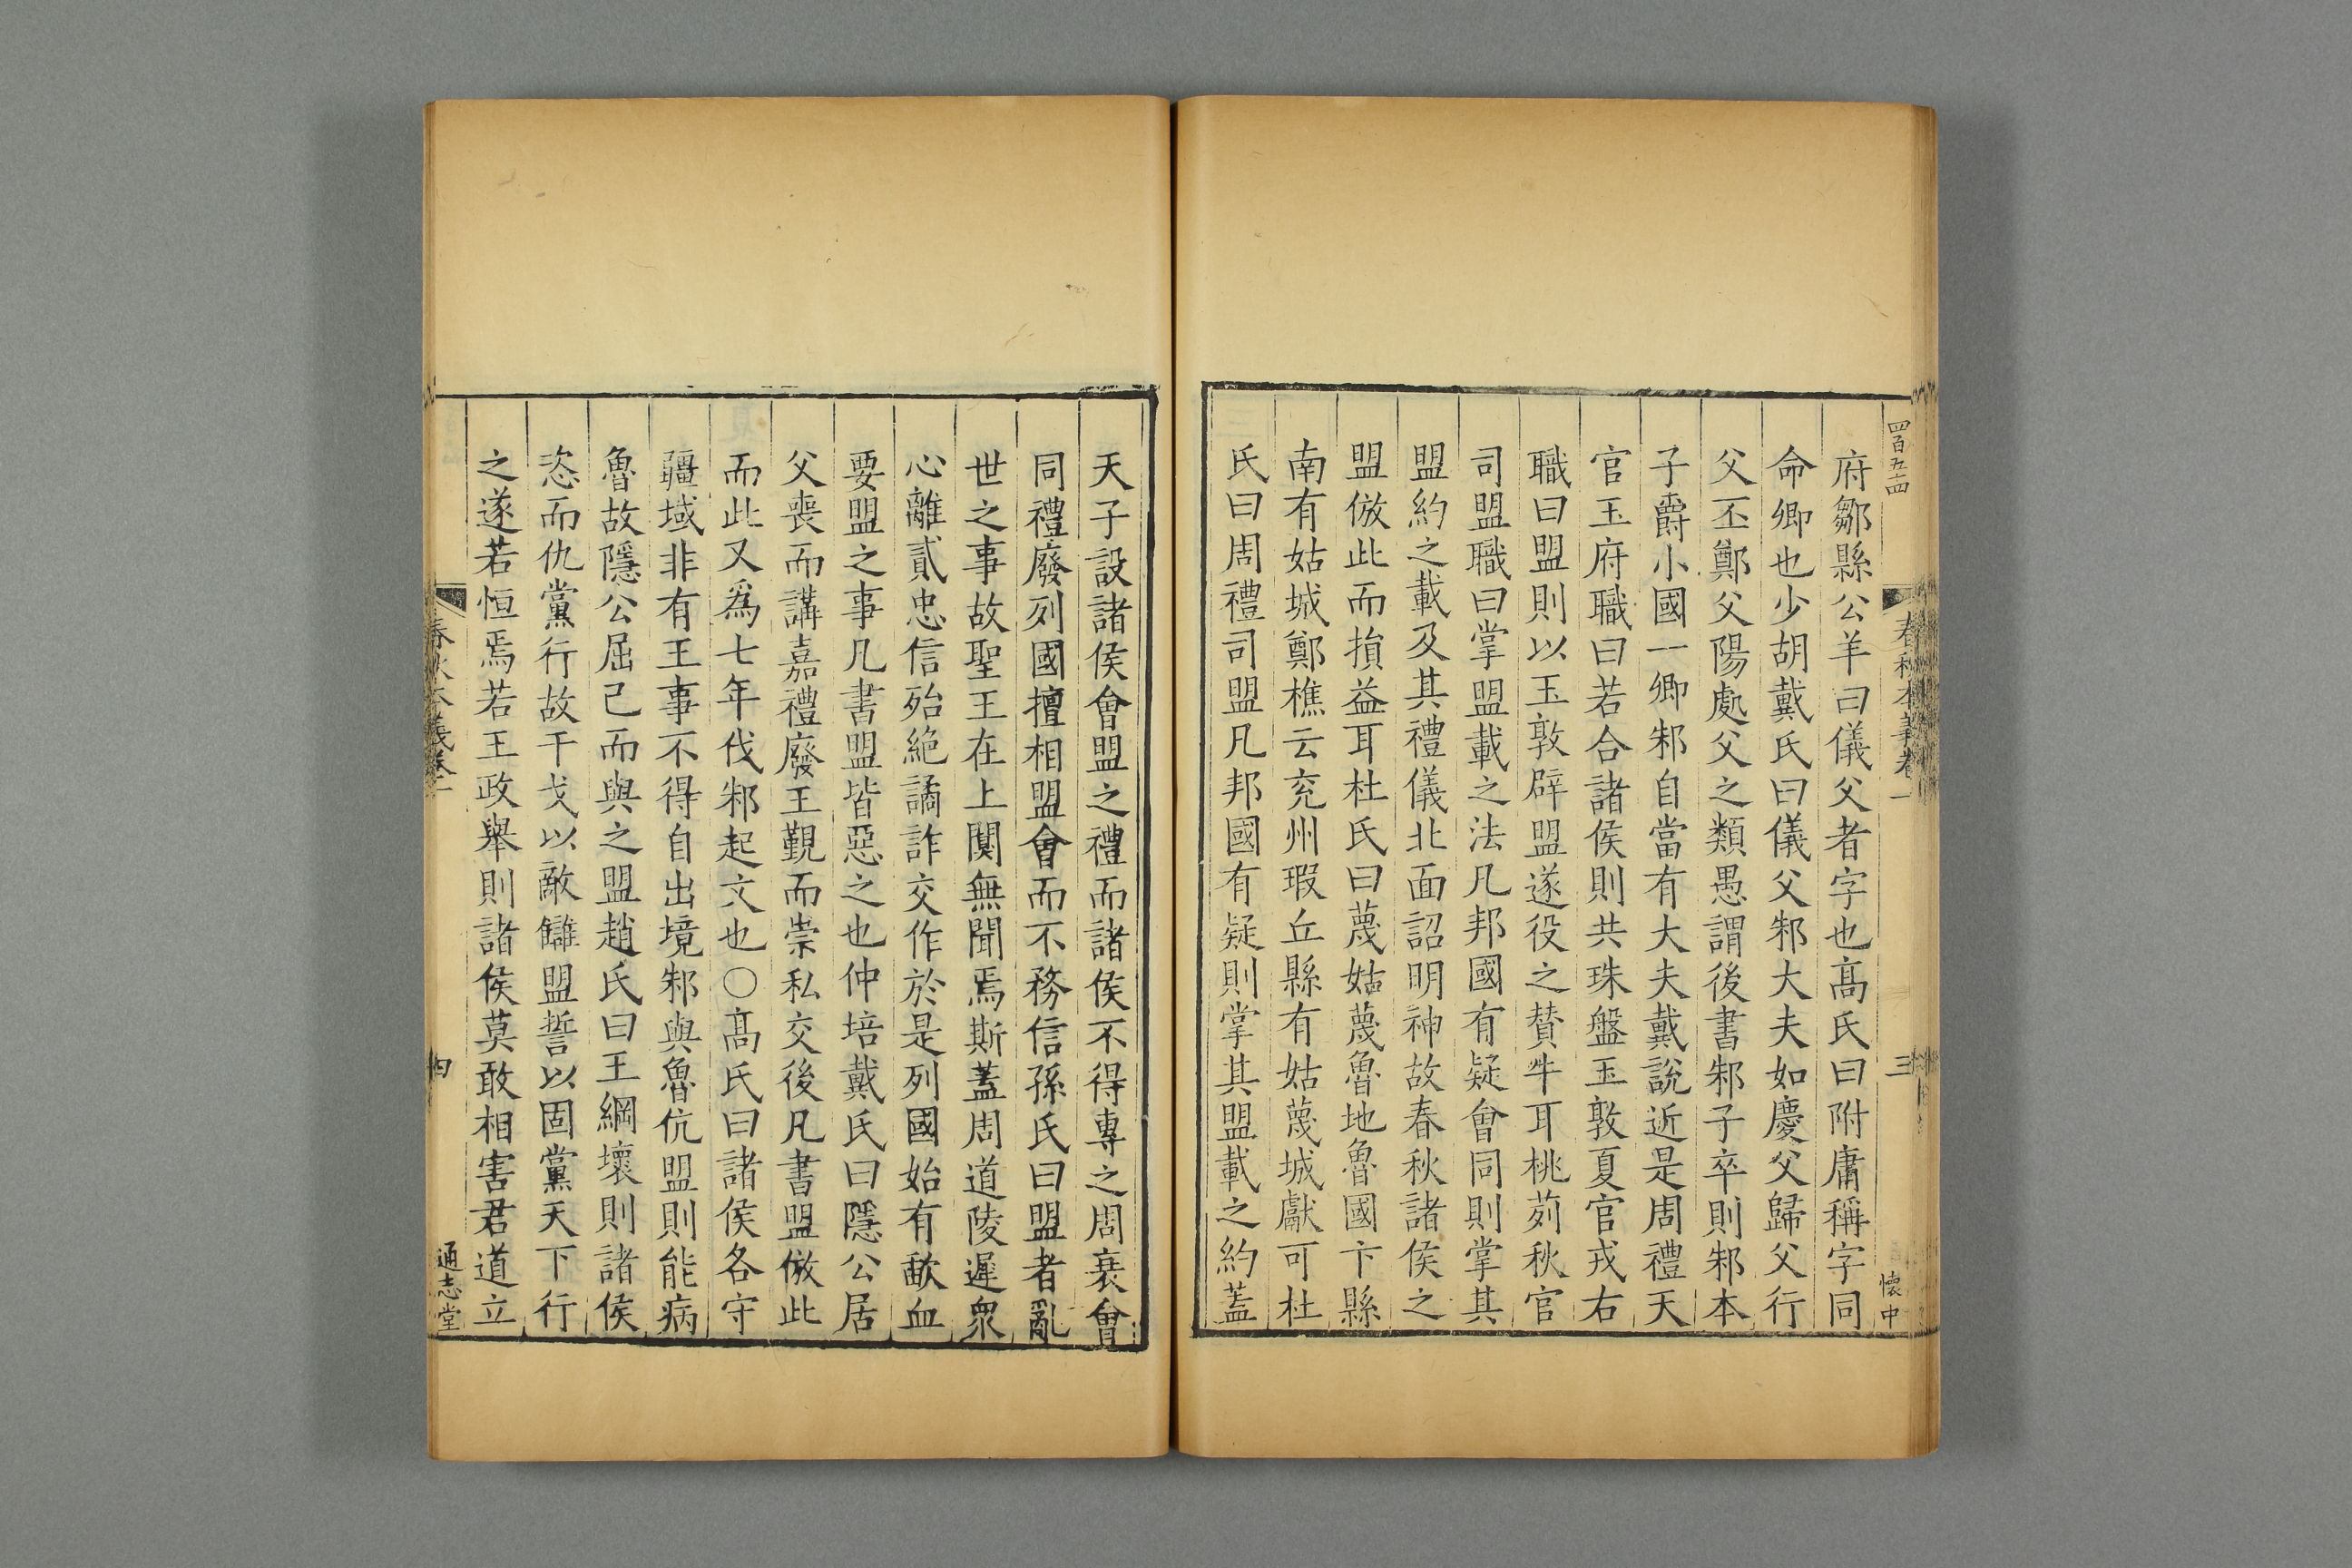 四百五十四
春秋本義卷一
三
懷中
府鄒縣公羊曰儀父者字也髙氏曰附庸稱字同
命卿也少胡戴氏曰儀父邾大夫如慶父歸父行
父丕鄭父陽處父之類愚謂後書邾子卒則邾本
子爵小國一卿邾自當有大夫戴說近是周禮天
官玉府職曰若合諸侯則共珠盤玉敦夏官戎右
職曰盟則以玉敦辟盟遂役之贊牛耳桃茢秋官
司盟職曰掌盟載之法凡邦國有疑會同則掌其
盟約之載及其禮儀北面詔明神故春秋諸侯之
盟倣此而損益耳杜氏曰蔑姑蔑魯地魯國卞縣
南有姑城鄭樵云兖州瑕丘縣有姑蔑城獻可杜
氏曰周禮司盟凡邦國有疑則掌其盟載之約蓋
天子設諸侯會盟之禮而諸侯不得專之周衰會
同禮廢列國擅相盟會而不務信孫氏曰盟者亂
世之事故聖王在上闃無聞焉斯蓋周道陵遲衆
心離貳忠信殆絶譎詐交作於是列國始有歃血
要盟之事凡書盟皆惡之也仲培戴氏曰隱公居
父喪而講嘉禮廢王覲而崇私交後凡書盟倣此
而此又爲七年伐邾起文也○髙氏曰諸侯各守
疆域非有王事不得自出境邾與魯伉盟則能病
魯故隱公屈己而與之盟趙氏曰王綱壞則諸侯
恣而仇黨行故干戈以敵讎盟誓以固黨天下行
之遂若恒焉若王政舉則諸侯莫敢相害君道立
春秋本義卷一
四
通志堂